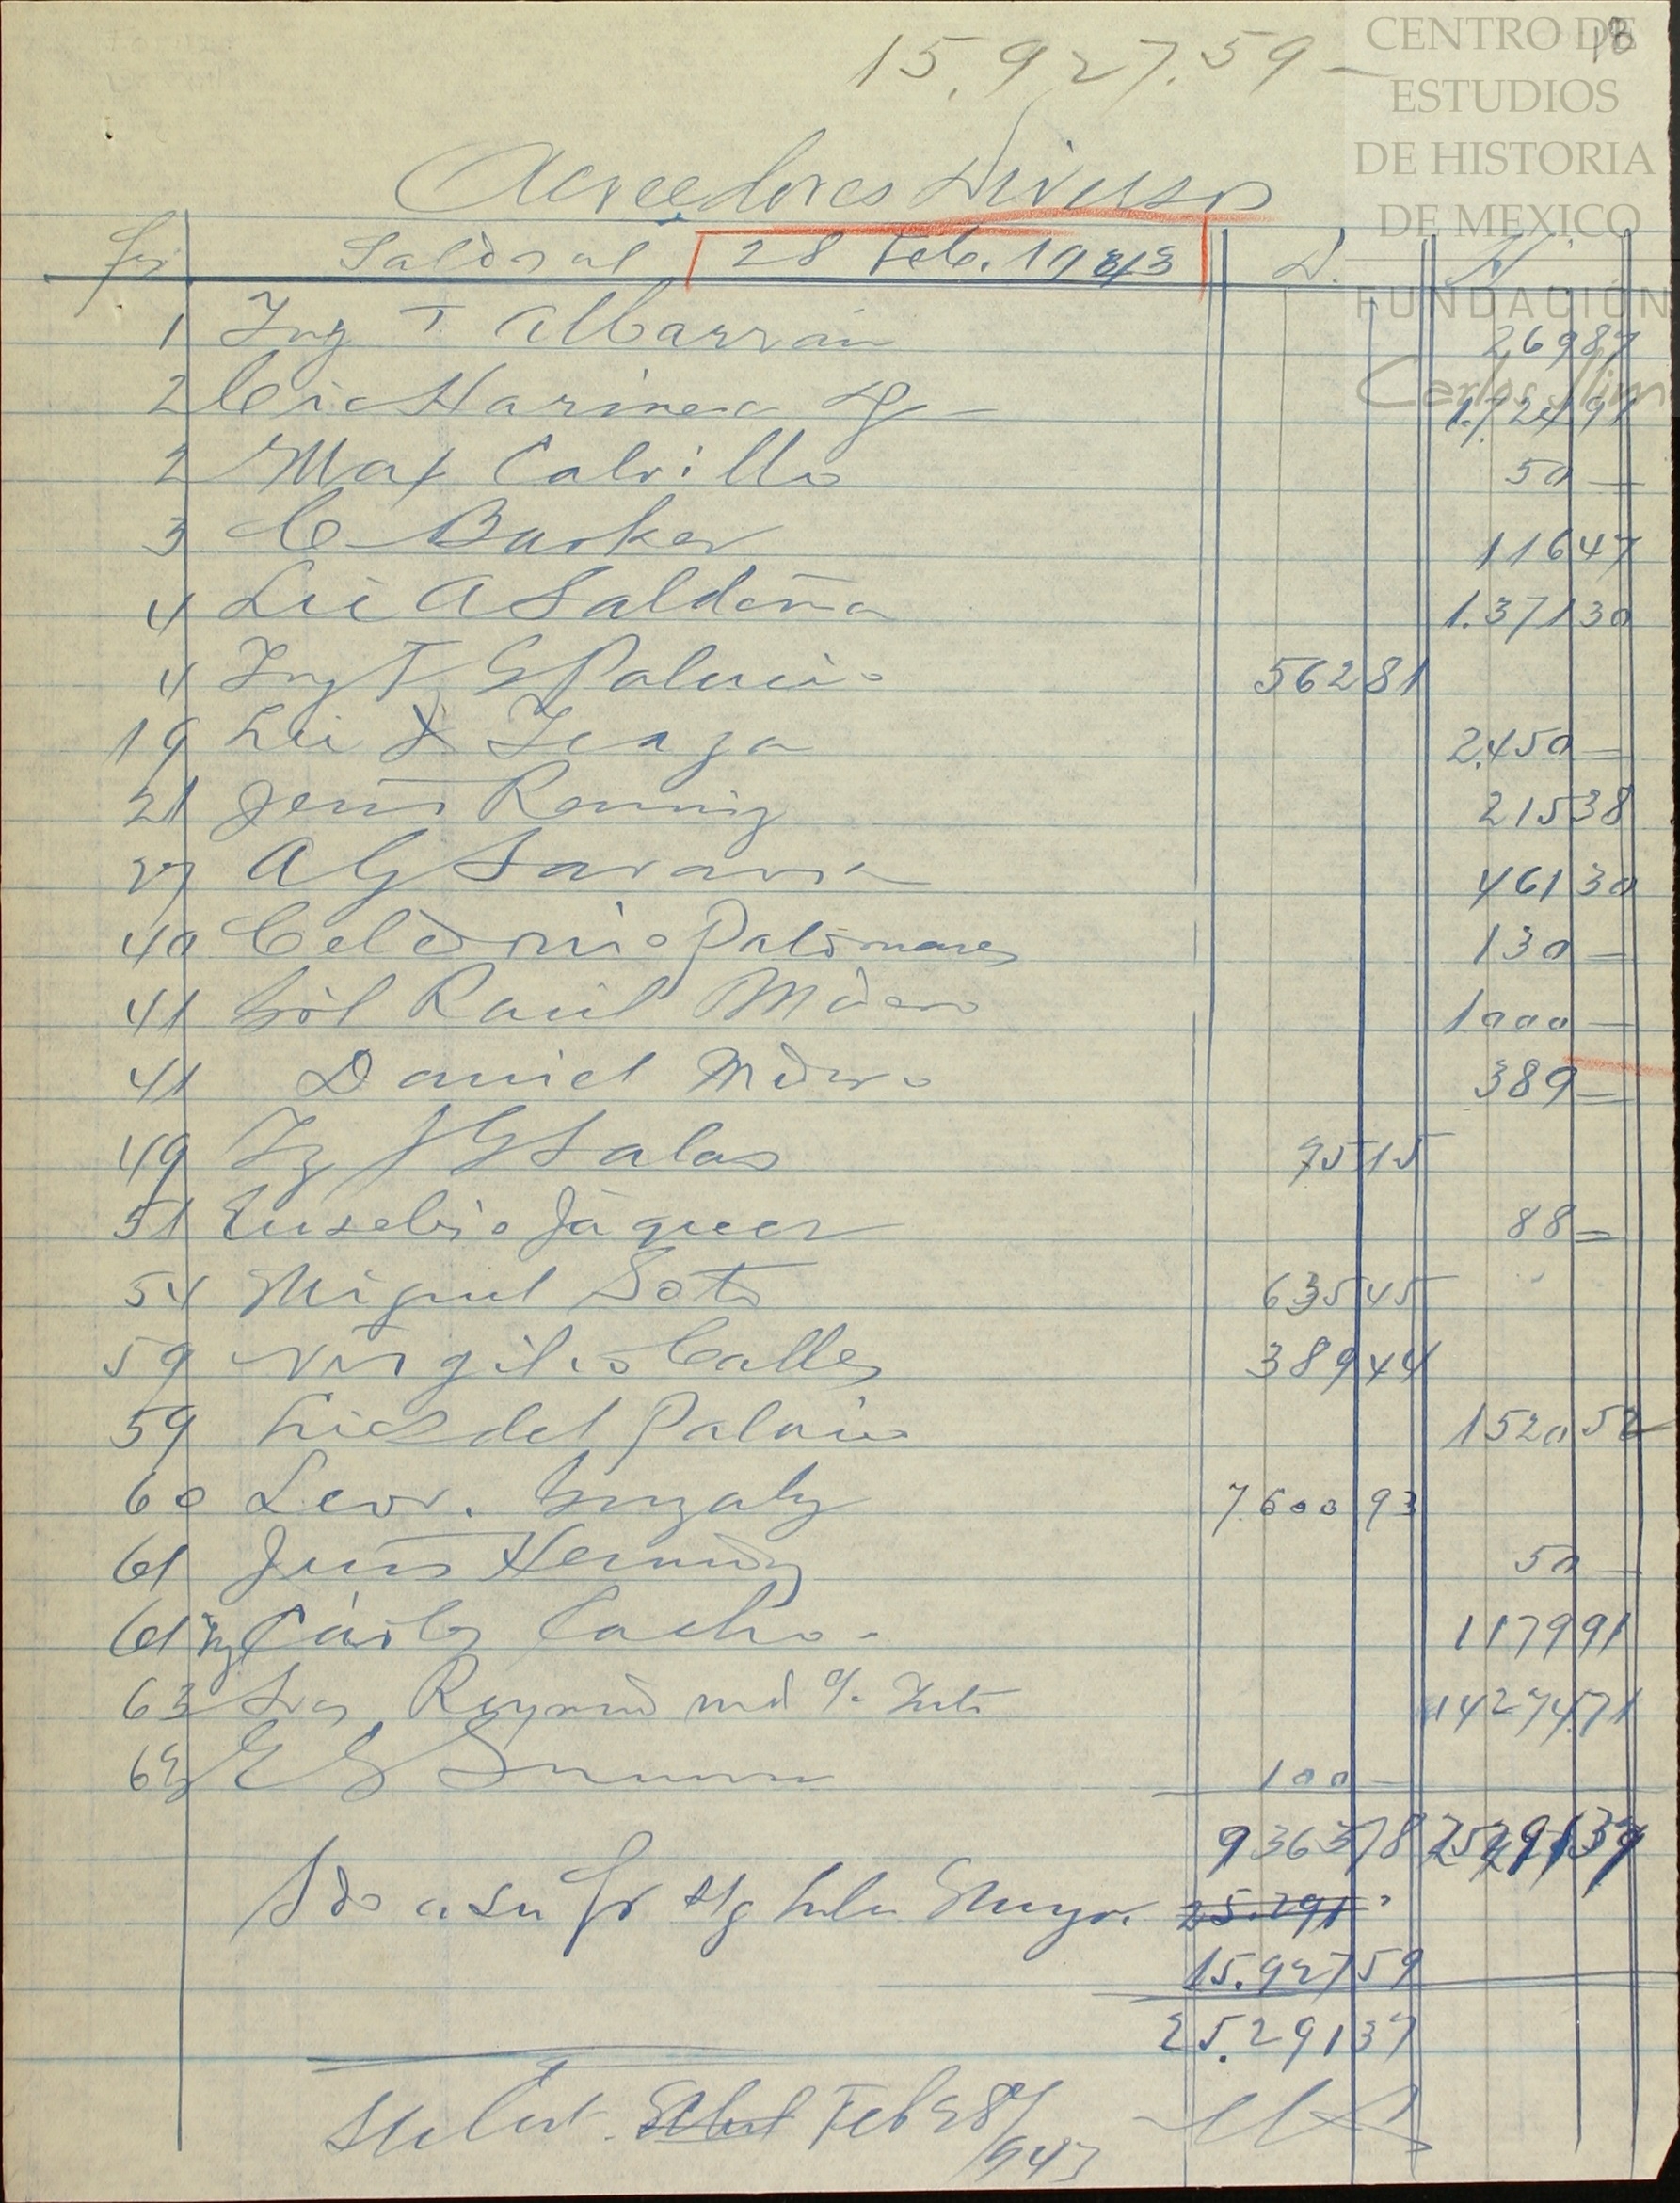 15.927.59 —
18
CENTRO DE
ESTUDIOS
DE HISTORIA
DE MEXICO
FUNDACIÓN
Carlos Slim
Acreedores Diversos
Saldos al 28 Feb. 1943 D. H
1 Ing T. Albarrán 269 87
2 Cia Harinera 1.724 91
2 Max Calvillo 50 —
3 C Barker 116 47
4 Lic A Saldaña 1.371 30
4 Ing T G Palacio 562 81
19 Lic 2.450 —
21 Jesús Ramirez 215 38
27 A G Saravia 461 30
40 Celedonio Palomares 130 —
41 Gral Raul Madero 1000 —
41 Daniel Madero 389 —
49 Ing J G Salas 75 15
51 Eusebio Jáquez 88 —
54 Miguel Soto 635 45
59 Virgilio Calles 389 44
59 Lic del Palacio 1520 52
60 Leov. Gonzalez 7.600 93
61 Jesús Hernandez 50 —
61 Ing Carlos Cacho 1179 91
63 14274.71
E G 100 —
9363 78 25291 37
Sdo a su fr 25.291
15.927 59
25.291 37
Feb 28/943